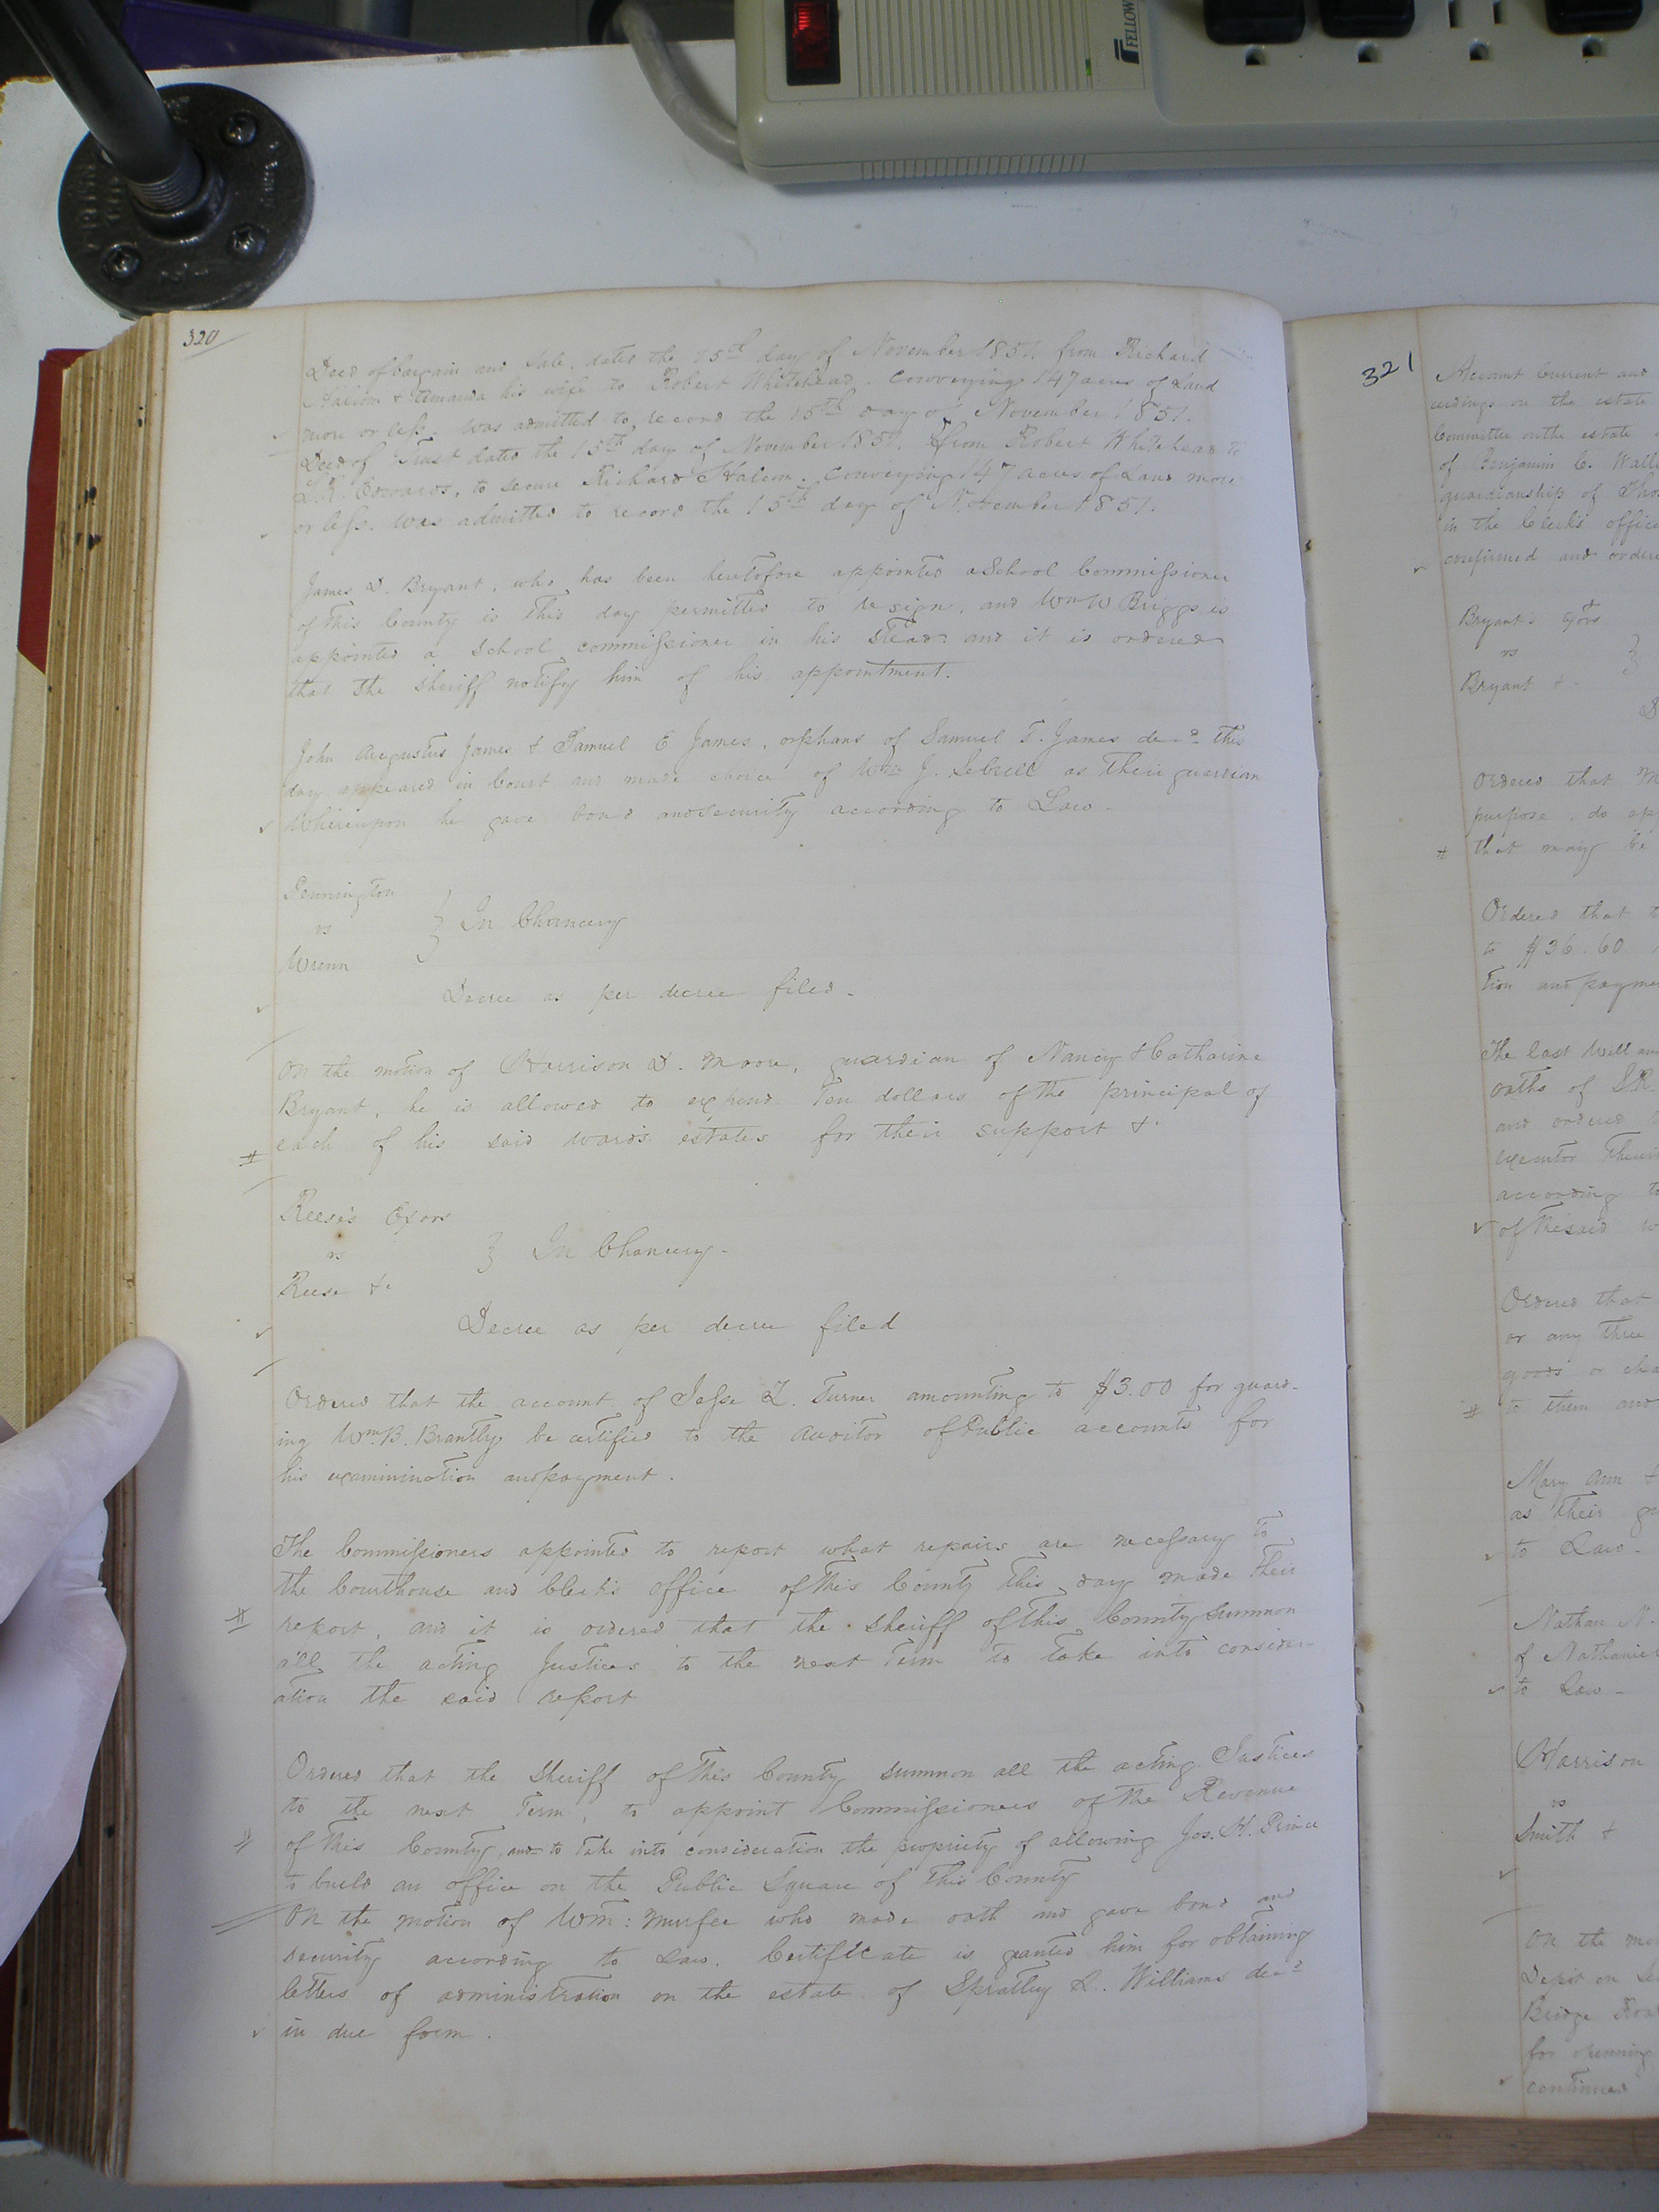 FELLOW
320
Deed of bargain and Sale, dated the 15th day of November 1851. from Richard
& Amanda his wife to Robert Whitehead. Conveying 147 acres of Land
more or less. was admitted to record the 15th day of November 1851.
Deed of Trust dated the 15th day of November 1851. from Robert Whitehead to
Edwards, to secure Richard Conveying 147 acres of Land more
or less. was admitted to record the 15th day of November 1851.
James D. Bryant, who has been heretofore appointed a School Commissioner
of this County is this day permitted to resign, and Wm W Briggs is
appointed a School commissioner in his stead: and it is ordered
that the sheriff notify him of his appointment.
John Augustus James & Samuel E James, orphans of Samuel T. James decd this
day appeared in Court and made choice of Wm J. Sebrell as their guardian
Whereupon he gave bond and security according to Law -
Pennington
vs } In Chancery
Wrenn
Decree as per decree filed -
On the motion of Harrison D. Moore, guardian of Nancy & Catharine
Bryant, he is allowed to expend Ten dollars of the principal of
each of his said wards estates for their support &c
Reese's Exors
vs } In Chancery -
Reese &c
Decree as per decree filed
Ordered that the account of Jesse L. Turner amounting to $3.00 for guard-
ing Wm. B. Brantly be certified to the Auditor of Public accounts for
his examinination and payment.
The Commissioners appointed to report what repairs are necessary to
the Courthouse and Clerk's office of this County this day made their
report, and it is ordered that the sheriff of this County summon
all the acting Justices to the next Term to take into consider-
ation the said report
Ordered that the Sheriff of this County summon all the acting Justices
to the next Term, to appoint Commissioners of the Revenue
of this County, and to take into consideration the propriety of allowing Jos. H. Prince
to build an office on the Public Square of this County
On the motion of Wm: Murfee who made oath and gave bond and
security according to Law. Certificate is granted him for obtaining
letters of administration on the estate of Spratley L. Williams decd
in due form.
321
Account Current and
on the estate
Committee on the estate
of Benjamin C.
guardianship of
in the Clerk's office
confirmed and
Bryant's Exors
vs }
Bryant &c
Ordered that
purpose, do
that may be
Ordered that
to $36.60
tion and
The last Will
oaths of
and ordered
executor
according to
of the said
Ordered that
or any three
goods or
to them and
Mary Ann &
as their
to Law -
Nathan
of
to Law -
Harrison
vs
Smith &
On the
on
Bridge
for opening
continued